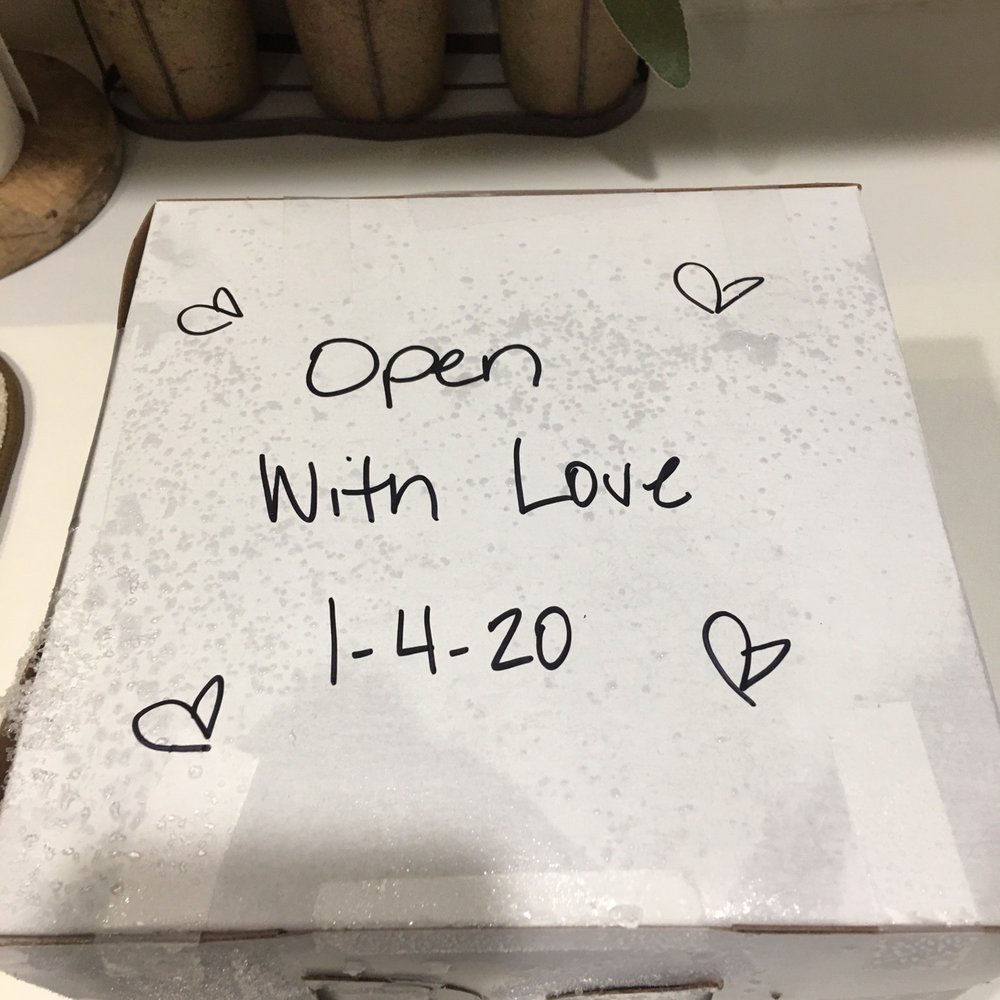 Open
With Love
1-4-20